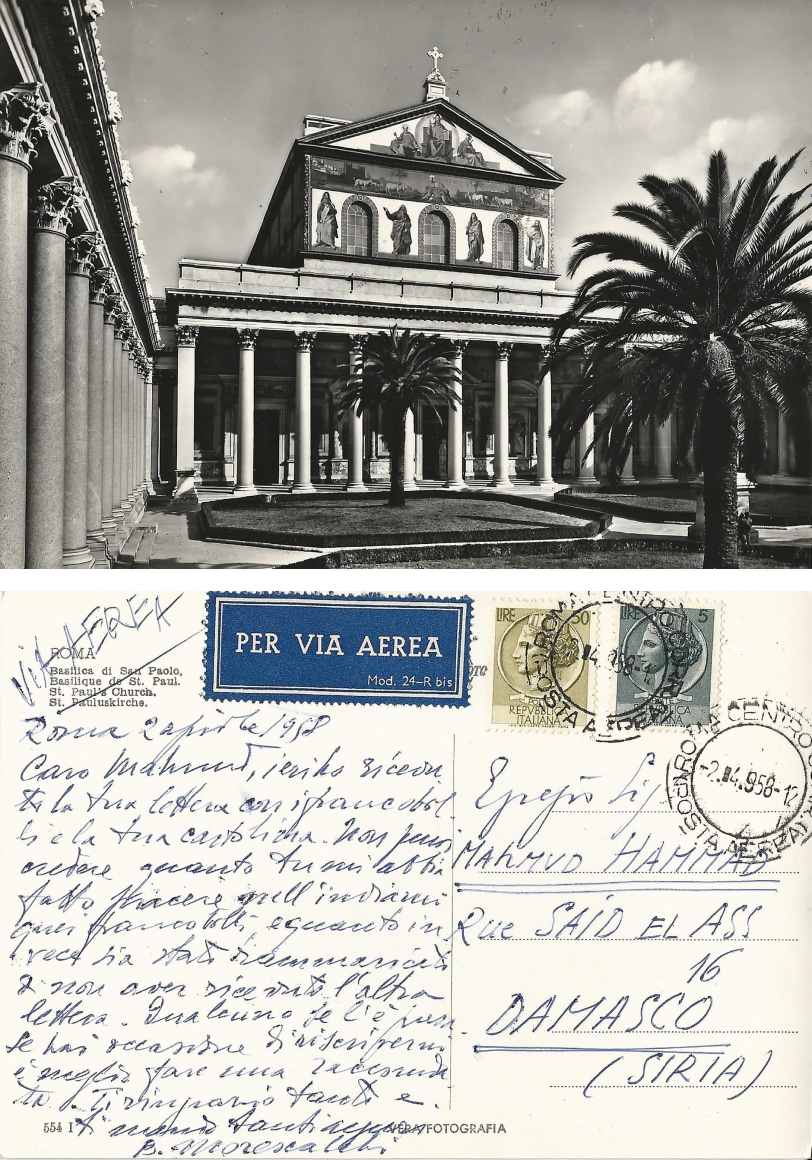 VIA AEREA
ROMA
Basilica di San Paolo.
Basilique de St. Paul.
St. Paul's Church.
St. Pauluskirche.
PER VIA AEREA
Mod. 24-R bis
LIRE 50
REPVBBLICA
ITALIANA
LIRE 5
ROMA CENTRO
POSTA AEREA
ROMA CENTRO
-2.4.958-12
POSTA AEREA
Roma 2 aprile 1958
Caro Mahmud, ieri ho ricevu
to la tua lettera con i francobol
li e la tua cartolina. Non puoi
credere quanto tu mi abbia
fatto piacere nell'inviarmi
quei francobolli, e quanto in
vece sia stato rammaricato
di non aver ricevuto l'altra
lettera. Qualcuno se l'è presa.
Se hai occasione di riscrivermi
è meglio fare una raccoman
ta. Ti ringrazio tanto e
ti mando tanti
B. Morescalchi
Egregio Sig.
MAHMUD HAMMAD
Rue SAID EL ASS
16
DAMASCO
(SIRIA)
554 I
VERA FOTOGRAFIA